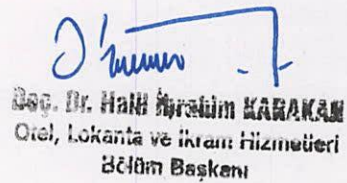 Doç. Dr. Halil İbrahim KARAKAN
Otel, Lokanta ve İkram Hizmetleri
Bölüm Başkanı